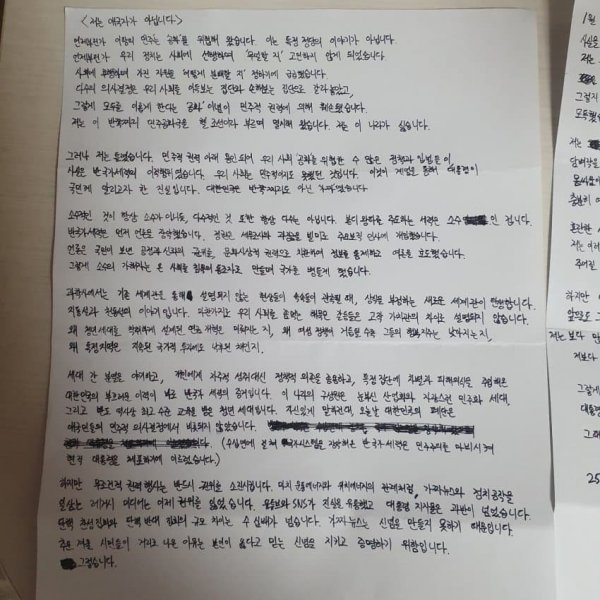 <저는 애국자가 아닙니다>
언제부턴가 이 땅의 민주는 공화를 위협해 왔습니다. 이는 특정 정당의 이야기가 아닙니다.
언제부턴가 우리 정치는 사회에 선행하여 '무엇을 할 지' 고민하지 않게 되었습니다.
사회에 후행하며 가진 자원을 어떻게 분배할 지 정하기에 급급했습니다.
다수의 의사결정은 우리 사회를 이득보는 집단과 손해보는 집단으로 갈라놓았고,
그렇게 모두를 이롭게 한다는 공화 이념이 민주적 권력에 의해 훼손됐습니다.
저는 이 반쪽짜리 민주공화국을 헬조선이라 부르며 멸시해 왔습니다. 저는 이 나라가 싫습니다.
그러나 저는 들었습니다. 민주적 권력 아래 용인되어 우리 사회 공화를 위협한 수 많은 정책과 입법들이,
사실은 반국가세력의 이었습니다. 우리 사회는 민주적이지도 못했던 것입니다. 이것이 계엄을 통해 대통령이
국민께 알리고자 한 진실입니다. 대한민국은 반쪽짜리도 아닌
소수적인 것이 항상 소수가 아니듯, 다수적인 것 또한 항상 다수는 아닙니다. 소수 인 겁니다.
반국가세력은 먼저 언론을 장악했습니다. 정권은 세무조사와 을 빌미로 인사에 개입했습니다.
언론은 국민이 보낸 공정과 신뢰의 권력을, 으로 치환하여 정보를 통제하고 여론을 호도했습니다.
그렇게 소수의 가해자는 온 사회를 만들며 국가를 병들게 했습니다.
과학사에서는 기존 세계관을 통해 설명되지 않는 현상들이 속속들이 관찰될 때, 상식을 부정하는 새로운 세계관이 탄생합니다.
지동설과 천동설의 이야기입니다. 마찬가지로 우리 사회를 좀먹는 해묵은 갈등들은 고작 가치관의 차이로 설명되지 않습니다.
왜 청년세대를 착취하게 설계된 연금 개혁은 미뤄지는 지, 왜 여성 정책이 거듭될수록 그들의 행복지수는 낮아지는지,
왜 특정지역은 지속된 국가적 투자에도 낙후된 채인지.
세대 간 분열을 야기하고, 개인에게 자주적 성취대신 정책적 의존을 종용하고, 특정 집단에 차별과 피해의식을 주입해온
대한민국의 부끄러운 이력이 반국가 세력의 증거입니다. 이 나라의 구성원은 눈부신 산업화와 자랑스런 민주화 세대,
그리고 반도 역사상 최고 수준 교육을 받은 청년 세대입니다. 자신있게 말하건대, 오늘날 대한민국의 폐단은
애국민들의 민주적 의사결정에서 비롯되지 않았습니다.
(수십년에 걸쳐 국가시스템을 장악해온 반국가세력은 민주주의를 마비시켜
현직 대통령을 체포하기에 이르렀습니다.)
하지만 무조건적 권력 행사는 반드시 권위를 소진시킵니다. 마치 운동에너지와 위치에너지의 관계처럼, 가짜뉴스와 정치공작을
일삼는 레거시 미디어는 이제 권위를 잃었습니다. 유튜브와 SNS가 진실을 유통했고 대통령 지지율은 과반이 넘었습니다.
탄핵 찬성집회와 탄핵 반대 집회의 규모 차이는 수 십배가 넘습니다. 가짜뉴스는 신념을 만들지 못하기 때문입니다.
추운 겨울 시민들이 거리로 나온 이유는 본인이 옳다고 믿는 신념을 지키고 증명하기 위함입니다.
그렇습니다.
1월
사실은
저는
그렇지
하지만
저는 보다
저보다
그렇게
대통령
그래
25